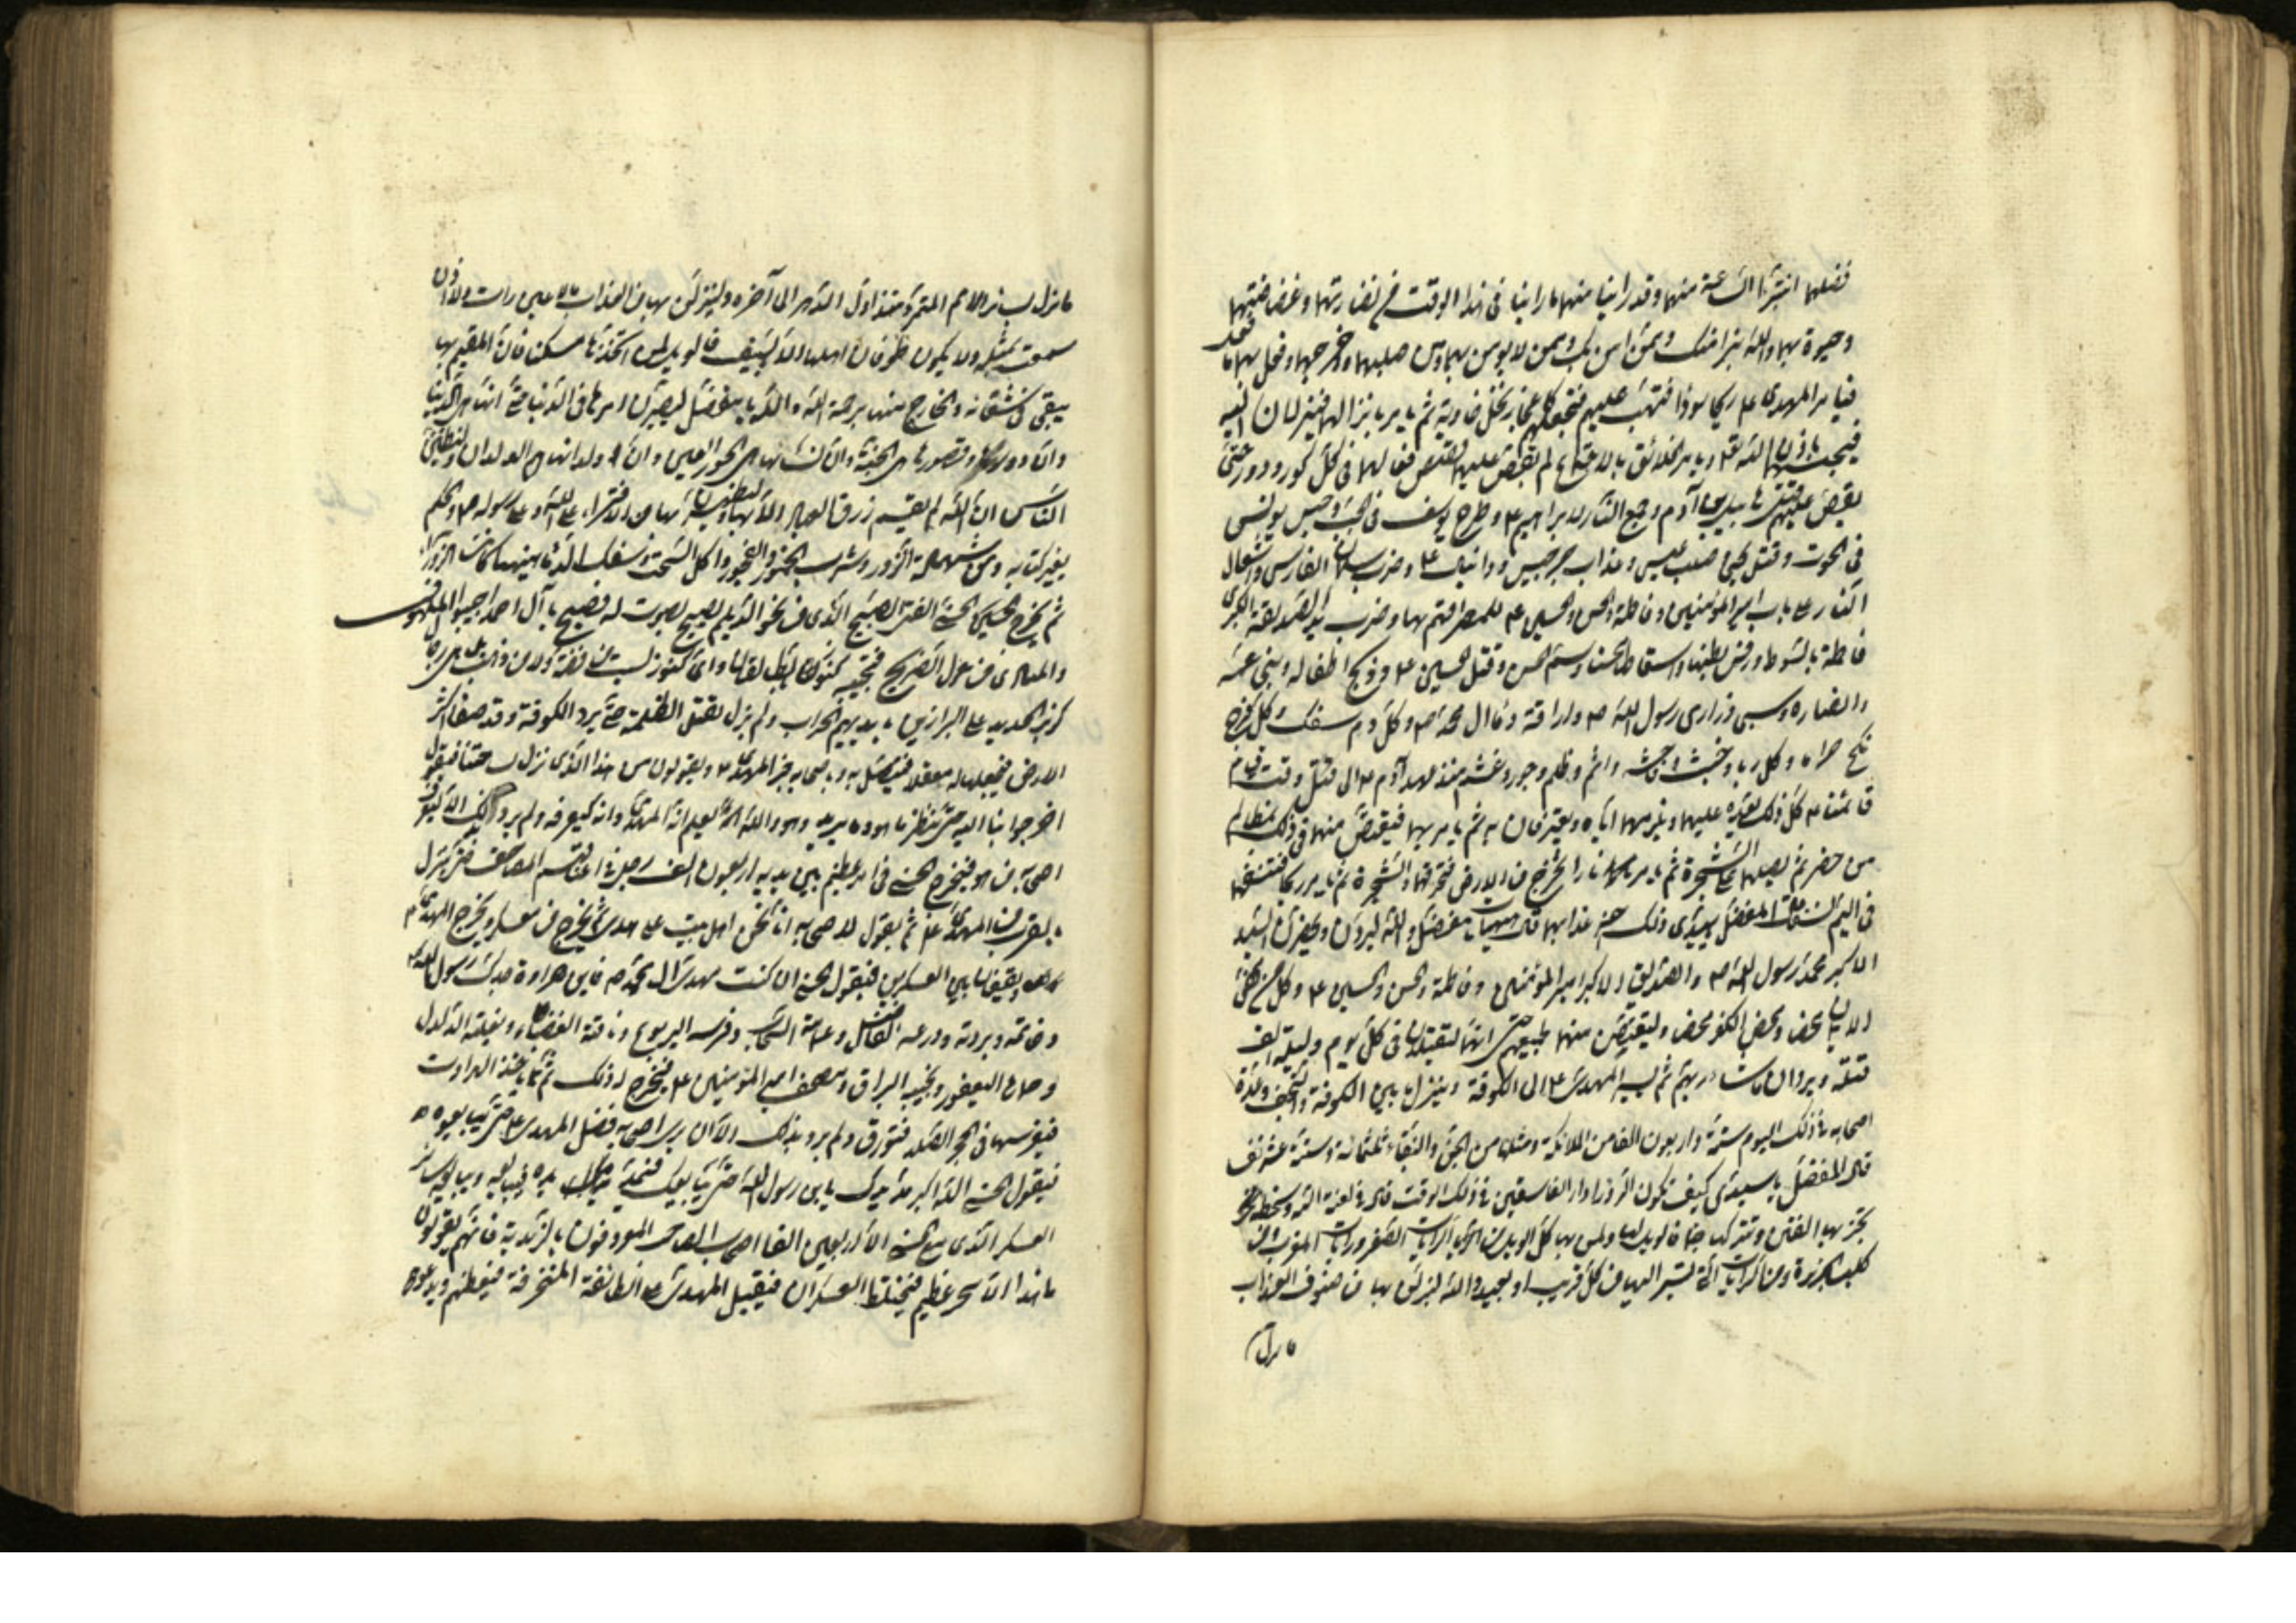 فضلهما انتشرا الساعة منهما وقد راينا منهما ما راينا فى هذا الوقت من نضارتهما وغضاضتهما
وحيوة بهما والله نبرأ منك وممن امن بك وممن لا يومن بهما ومن صلبهما واخرجهما وفعل بهما ما فعل
فيامر المهدى ع ريحا سودا فتهب عليهم فتجعلهم كاعجاز نخل خاوية ثم يامر بانزالهما فينزلان اليه
فيحييهما باذن الله تع ويامر الخلائق بالاجتماع ثم يقص عليهم قصص فعالهما فى كل كور ودور حتى
يقص عليهم قتل هابيل بن آدم وجمع النار لابراهيم ع وطرح يوسف فى الجب وحبس يونس
فى الحوت وقتل يحيى وصلب عيسى وعذاب جرجيس ودانيال ع وضرب سلمان الفارسى واشعال
النار على باب امير المؤمنين وفاطمة والحسن والحسين ع لاحراقهم بها وضرب يد الصديقة الكبرى
فاطمة بالسوط ورفس بطنها واسقاطها محسنا وسم الحسن وقتل الحسين ع وذبح اطفاله وبنى عمه
وانصاره وسبى ذرارى رسول الله ص واراقة دماء آل محمد ص وكل دم سفك وكل فرج
نكح حراما وكل ربا وخبث وفاحشة واثم وظلم وجور وغشم منذ عهد آدم ع الى وقت قيام
قائمنا ع كل ذلك يعدده عليهما ويلزمهما اياه ويعترفان به ثم يامر بهما فيقتص منهما فى ذلك بمظالم
من حضر ثم يصلبهما على الشجرة ثم يامر نارا تخرج من الارض فتحرقهما والشجرة ثم يامر ريحا فتنسفهما
فى اليم نسفا قال المفضل يا سيدى ذلك آخر عذابهما قال هيهات يا مفضل والله ليردن وليحضرن السيد
الاكبر محمد رسول الله ص والصديق الاكبر امير المؤمنين وفاطمة والحسن والحسين ع وكل من محض
الايمان محضا ومحض الكفر محضا وليقتصن منهما لجميعهم حتى انهما ليقتلان فى كل يوم وليلة الف
قتلة ويردان الى ما شاء ربهم ثم يسير المهدى ع الى الكوفة وينزل ما بين الكوفة والنجف وعدة
اصحابه فى ذلك اليوم ستة واربعون الفا من الملائكة ومثلها من الجن والنقباء ثلثمائة وثلثة عشر نفسا
قال المفضل يا سيدى كيف تكون الزوراء دار الفاسقين فى ذلك الوقت قال فى لعنة الله وسخطه
تخربها الفتن وتتركها جماء فالويل لها ولمن بها كل الويل من الرايات الصفر ورايات المغرب ومن
كلب الجزيرة ومن الرايات التى تسير اليها من كل قريب او بعيد والله لينزلن بها من صنوف العذاب
ما نزل
ما نزل بسائر الامم المتمردة منذ اول الدهر الى آخره ولينزلن بها من العذاب ما لا عين رات ولا اذن
سمعت بمثله ولا يكون طوفان اهلها الا السيف فالويل لمن اتخذ بها مسكنا فان المقيم بها
يبقى لشقائه والخارج منها برحمة الله والله يا مفضل ليصيرن امرها فى الدنيا حتى يقال انها هى الدنيا
وان دورها وقصورها هى الجنة وان نساءها هن الحور العين وان ولدانها هم الولدان وليظنن
الناس ان الله لم يقسم رزق العباد الا بها وليظهرن بها من الافتراء على الله وعلى رسوله ص والحكم
بغير كتابه ومن شهادة الزور وشرب الخمور والفجور واكل السحت وسفك الدماء
ثم يخرج الحسنى الفتى الصبيح الذى نحو الديلم يصيح بصوت له فصيح يا آل احمد اجيبوا الملهوف
والمنادى من حول الضريح فتجيبه كنوز الله بطالقان واى كنوز ليست من فضة ولا من ذهب بل هى رجال
كزبر الحديد على البراذين بايديهم الحراب ولم يزل يقتل الظلمة حتى يرد الكوفة وقد صفا اكثر
الارض فيجعلها له معقلا فيتصل به وباصحابه خبر المهدى ع ويقولون من هذا الذى نزل بساحتنا فيقول
اخرجوا بنا اليه حتى ننظر ما هو وما يريد وهو والله يعلم انه المهدى وانه ليعرفه ولم يرد بذلك الا ليعرف
اصحابه من هو فيخرج الحسنى فى امر عظيم بين يديه اربعون الف رجل فى اعناقهم المصاحف حتى ينزل
بالقرب من المهدى ع ثم يقول لاصحابه انا نحن اهل بيت على هدى ثم يخرج من معسكره ويخرج المهدى ع
ويقفان بين العسكرين فيقول الحسنى ان كنت مهدى آل محمد ص فاين هراوة جدك رسول الله ص
وخاتمه وبردته ودرعه الفاضل وعمامته السحاب وفرسه اليربوع وناقته العضباء وبغلته الدلدل
وحماره اليعفور ونجيبه البراق ومصحف امير المؤمنين ع فيخرج له ذلك ثم ياخذ الهراوة
فيغرسها فى الحجر الصلد فتورق ولم يرد بذلك الا ان يرى اصحابه فضل المهدى ع حتى يبايعوه
فيقول الحسنى الله اكبر مد يدك يا بن رسول الله حتى نبايعك فيمد يده فيبايعه ويبايعه سائر
العسكر الذى مع الحسنى الا اربعين الفا اصحاب المصاحف المعروفون بالزيدية فانهم يقولون
ما هذا الا سحر عظيم فيختلط العسكران فيقبل المهدى ع على الطائفة المنحرفة فيعظهم ويدعوهم